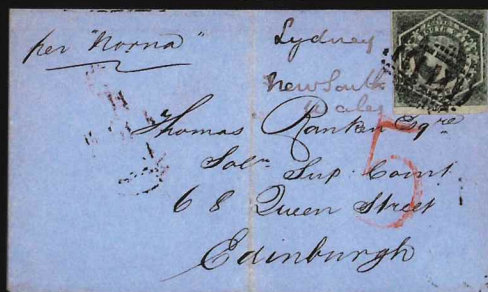 per "Norna"
Sydney
New South
Wales
Thomas Ranken Esqre
Solr Sup. Court
68 Queen Street
Edinburgh
5